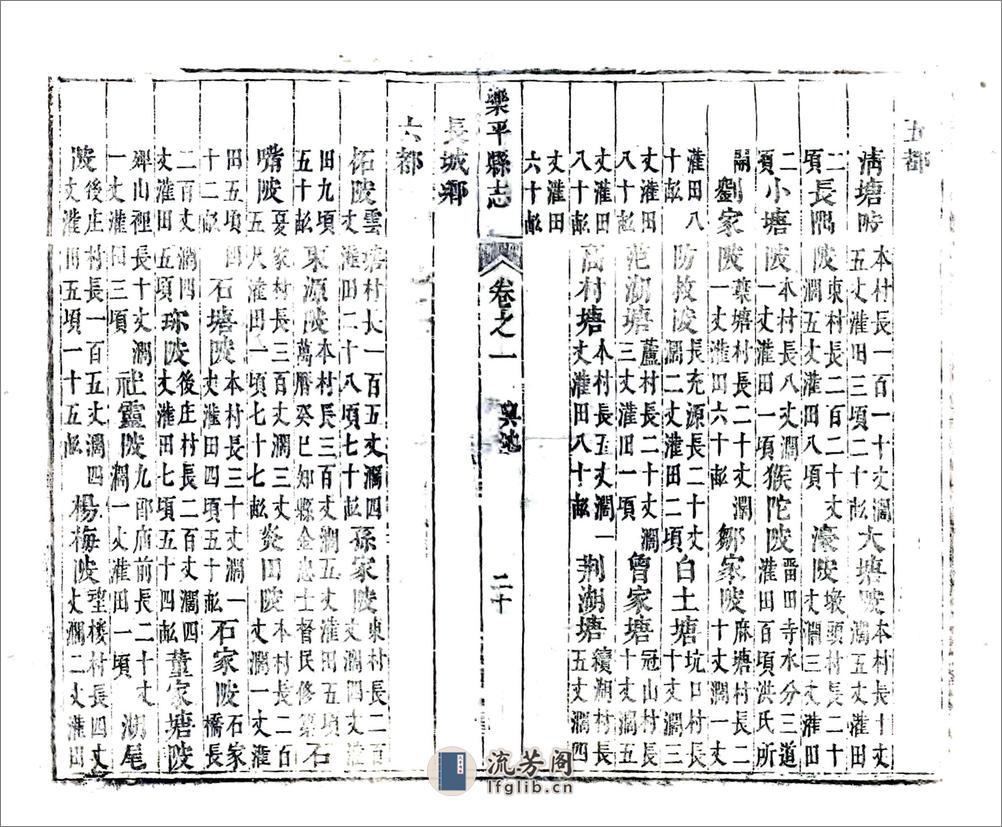 五都
清塘陂本村長一百一十丈濶五丈灌田三頃二十畝大塘陂本村長十丈濶五丈灌田
二頃長隅陂東村長二百二十丈濶五丈灌田八頃濠陂墩頭村長二十丈濶三丈灌田
二頃小塘陂本村長八丈濶一丈灌田一頃猴陀陂畱田寺水分三道灌田百頃洪氏所
闢劉家陂葉塘村長二十丈濶一丈灌田六十畝鄒家陂麻塘村長二十丈濶一丈
灌田八十畝防敖陂長充源長二十丈濶二丈灌田二頃白土塘坑口村長十丈濶三
丈灌田八十畝范湖塘蘆村長二十丈濶三丈灌田一頃曾家塘冠山村長十丈濶五
丈灌田八十畝高村塘本村長五丈濶一丈灌田八十畝荆湖塘續湖村長五丈濶四
丈灌田六十畝
樂平縣志 卷之一 輿地 二十
長城鄉
六都
柘陂雲塘村長一百五丈濶四丈灌田二十八頃七十畝孫家陂東村長二百丈濶四丈灌
田九頃五十畝東源陂本村長三百丈濶五丈灌田五頃萬曆癸巳知縣金忠士督民修築石
嘴陂夏家村長三百丈濶三丈五尺灌田一頃七十七畝炎田陂本村長二百丈濶一丈灌
田五頃四十二畝石塘陂本村長三十丈濶一丈灌田四頃五十畝石家陂石家橋長
二百丈濶四丈灌田五頃陂後庄村長二百丈濶四丈灌田七頃五十四畝董家塘陂
山裡長十丈濶一丈灌田三頃社靈陂九郎庙前長二十丈濶一丈灌田一頃湖尾
陂後庄村長一百五丈濶四丈灌田五頃一十五畝楊梅陂樓村長四丈濶二丈灌田
流芳阁
lfglib.cn